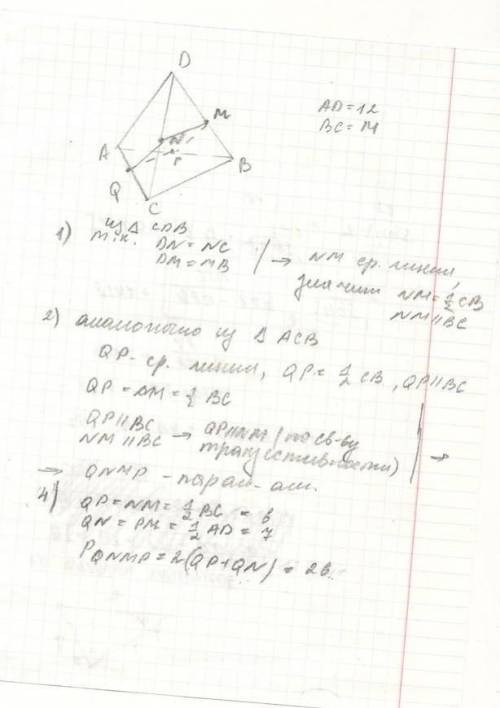 D
M
A
N
P
B
Q
C
AD=12
BC=14
1) из △ CDB
т.к. DN = NC
DM = MB
→ NM ср. линия,
значит NM = 1/2 CB
NM || BC
2) аналогично из △ ACB
QP - ср. линия, QP = 1/2 CB, QP || BC
QP = NM = 1/2 BC
QP || BC
NM || BC → QP || NM (по св-ву
транзитивности) →
→ QNMP - парал-ам.
4) QP = NM = 1/2 BC = 6
QN = PM = 1/2 AD = 7
PQNMP = 2(QP+QN) = 26.